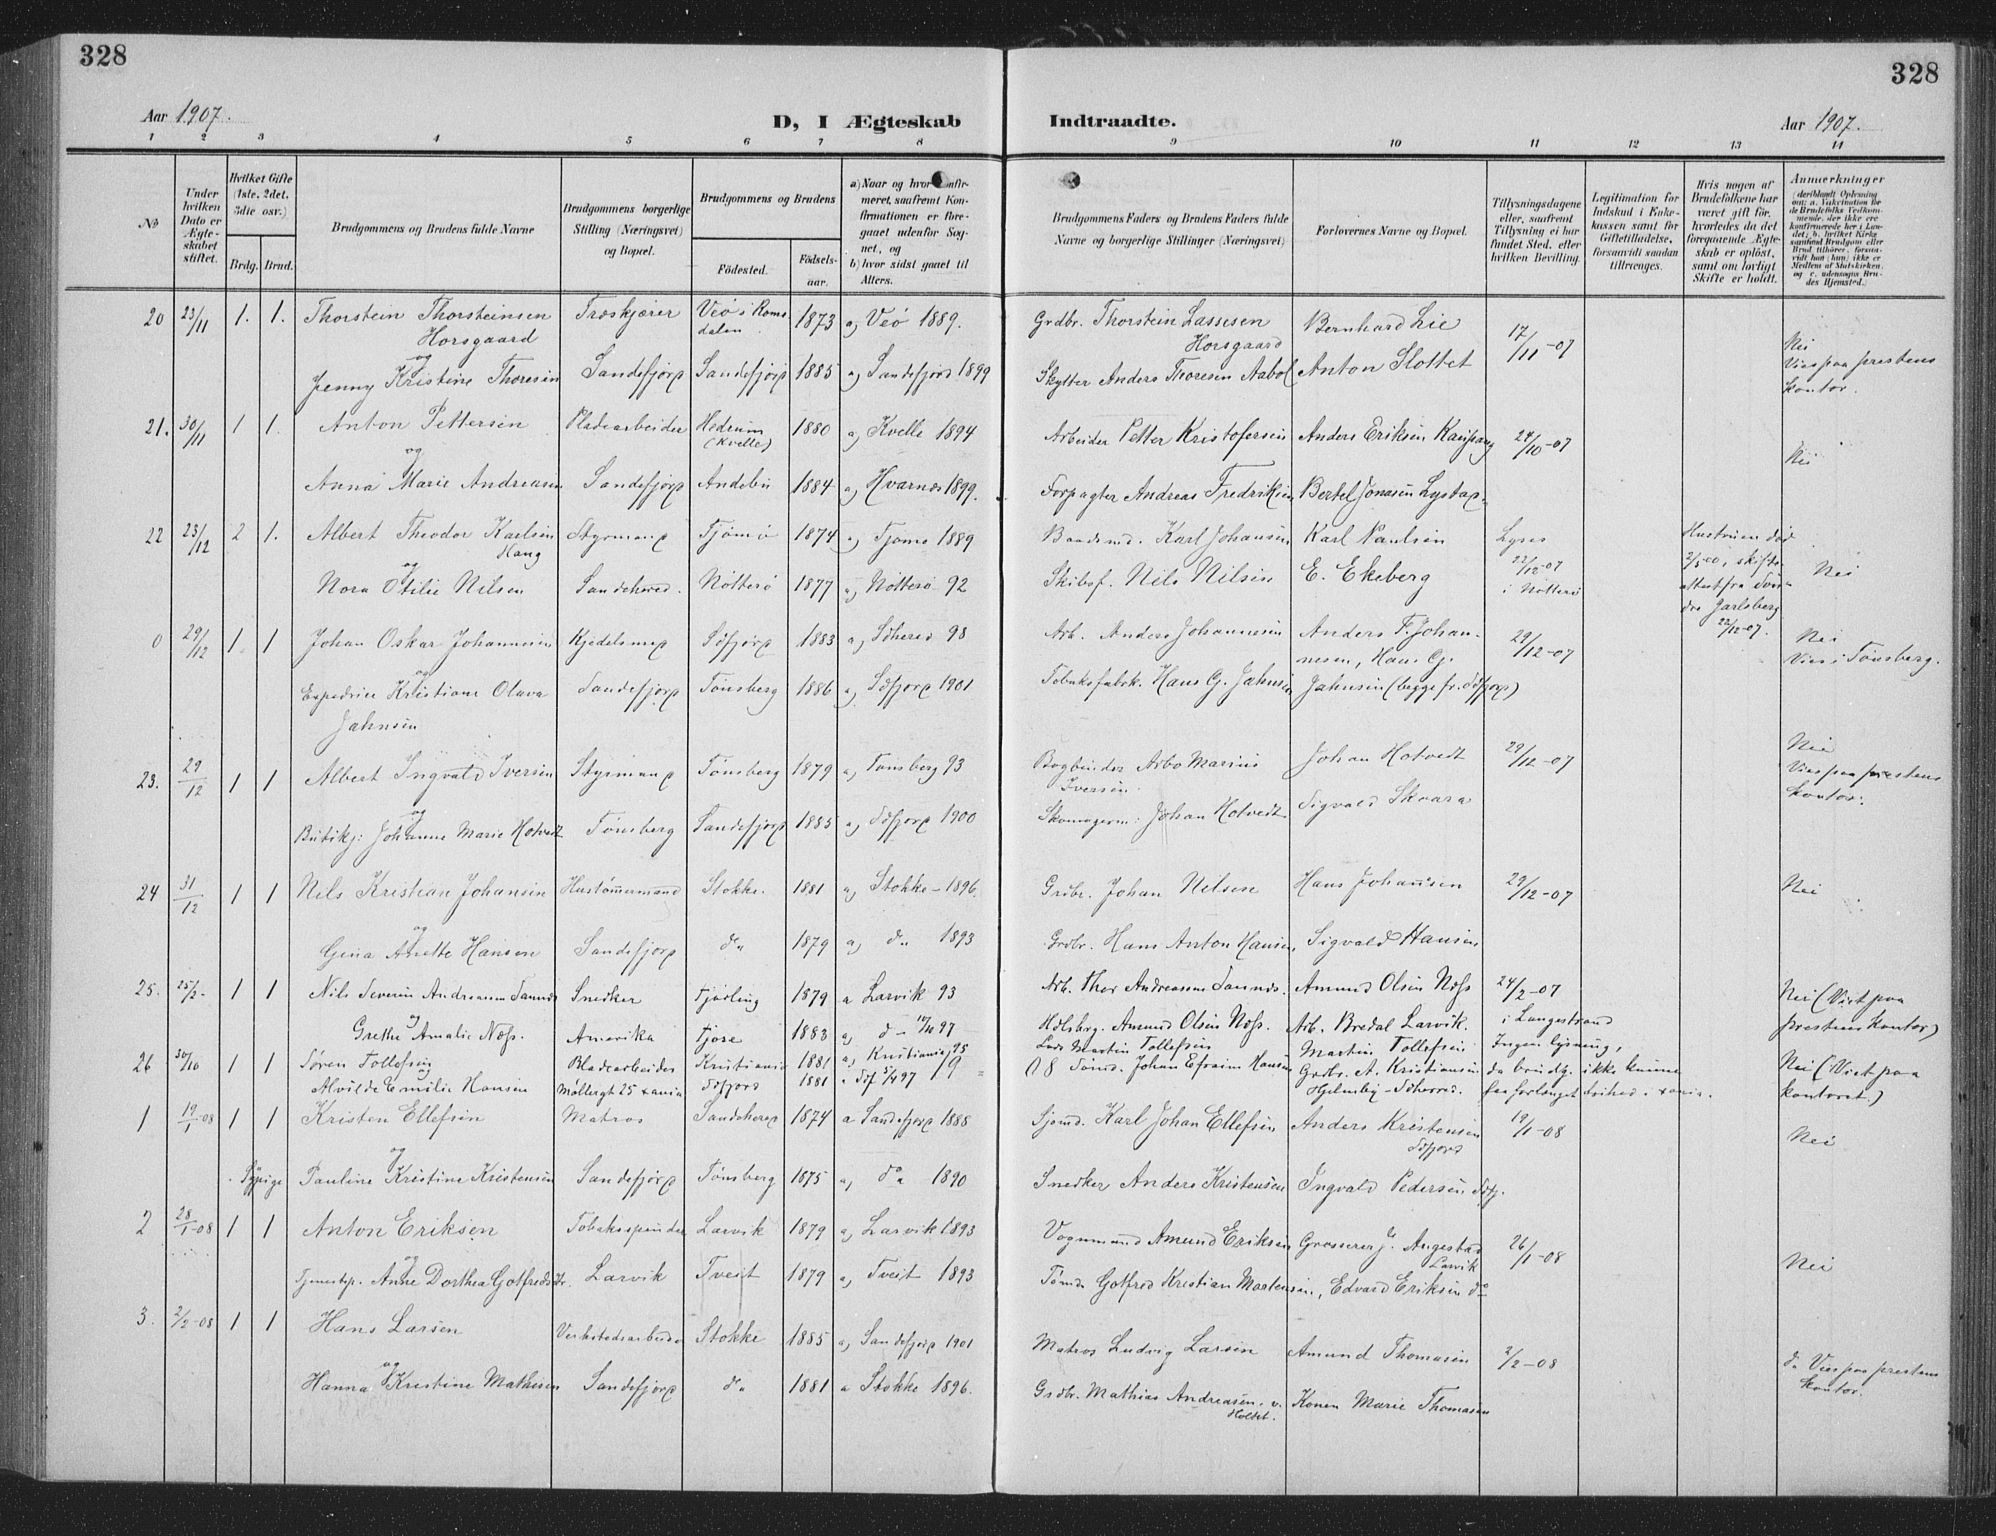 328
328
Aar 1907.
D, I Ægteskab Indtraadte.
Aar 1907.
1 2 3 4 5 6 7 8 9 10 11 12 13 14
No
Under hvilken Dato er Ægteskabet stiftet.
Hvilket Gifte (1ste, 2det, 3die osv.)
Brdg. Brud.
Brudgommens og Brudens fulde Navne
Brudgommens borgerlige Stilling (Næringsvei) og Bopæl.
Brudgommens og Brudens
Födested.
Födsels-aar.
a) Naar og hvor confirmeret, saafremt Konfirmationen er foregaaet udenfor Sognet, og
b) hvor sidst gaaet til Alters.
Brudgommens Faders og Brudens Faders fulde Navne og borgerlige Stillinger (Næringsvei)
Forlovernes Navne og Bopæl.
Tillysningsdagene eller, saafremt Tillysning ei har fundet Sted, efter hvilken Bevilling.
Legitimation for Indskud i Enkekassen samt for Giftetilladelse, forsaavidt saadan tiltrænges.
Hvis nogen af Brudefolkene har været gift før, hvorledes da det foregaaende Ægteskab er opløst, samt om lovligt Skifte er holdt.
Anmærkninger
20 23/11 1. 1. Thorstein Thorsteinsen Træskjærer Veö i Romsdalen 1873 a) Veö 1889. Grdbr. Thorstein Lassesen Bernhard Lie 17/11-07 Nei
Horsgaard Horsgaard
og
Jenny Kristine Thoresen Sandefjord Sandefjord 1885 a) Sandefjord 1899 Skytter Anders Thoresen Anton Slottet Vies paa prestens kontor.
21. 30/11 1 1. Anton Pettersen Pladearbeider Hedrum (Kvelle) 1880 a) Kvelle 1894 Arbeider Petter Kristofersen Anders Eriksen Kaupang 24/10-07 Nei
og
Anna Marie Andreasen Sandefjord Andebu 1884 a) Hvarnes 1899. Forpagter Andreas Fredriksen Bertel Jonasen
22 23/12 2 1. Albert Theodor Karlsen Styrmand Tjømø 1874 a) Tjømø 1889 Karl Johansen Karl Paulsen Lyses Hustruen død
Haug 22/12-07
og
Nora Otilie Nilsen Sandeherred. Nötterö 1877 a) Nötterö 92 Skibsf. Nils Nilsen E. Ekeberg i Nötterö Nei
Jarlsberg 22/12-07.
0 29/12 1 1 Johan Oskar Johannesen Kjedelsmed Sdfjord 1883 a) Sdherred 98 Arb. Anders Johannesen Anders F. Johannesen, Hans G. 29/12-07 Nei
og Vies i Tønsberg.
Expedrice Kristiane Olava Sandefjord Tønsberg 1886 a) Sdfjord 1901 Tobaksfabrk. Hans G. Jahnsen Jahnsen (begge fr. Sdfjord)
Jahnsen
23. 29/12 1 1 Albert Ingvald Iversen Styrmand Tønsberg 1879 a) Tønsberg 93 Bogbinder Arbo Marius Johan Hotvedt 29/12-07 Nei
Iversen Vies paa prestens kontor.
og
Butikj: Johanne Marie Hotvedt Tønsberg Sandefjord 1885 a) Sdfjord 1900 Skomagerm: Johan Hotvedt Sigvald Skaara
24 31/12 1 1 Nils Kristian Johansen Hustømmermand Stokke. 1881 a) Stokke - 1896. Grdbr. Johan Nilsen Hans Johansen 29/12-07 Nei
og
Gina Anette Hansen Sandefjord do 1879 a) do 1893 Grdbr. Hans Anton Hansen Sigvald Hansen
25. 25/2- 1 1 Nils Severin Andreassen Snedker Tjødling 1879 a Larvik 93 Arb. Thor Andreassen Amund Olsen Næss 24/2-07 Nei (Viet paa
og i Langestrand prestens Kontor)
Grethe Amalie Næss. Amerika Tjøse 1883 a) d - 97 Amund Olsen Næss. Arb. Bredal Larvik.
26 30/10 1 1 Søren Tollefsen Bladearbeider Kristiania 1881 a) Kristiania 95 Lods Martin Tollefsen Martin Tollefsen Ingen lysning, Nei (Viet paa
Alvilde Emilie Hansen Møllergt 25 Sdfjord 1881 Johan Efraim Hansen Grdbr. A. Kristiansen da brudg. ikke kunne kontoret.)
Hjelmby - Sdherred.
1 19/1-08 1 1 Kristen Ellefsen Matros Sandeherred 1874 a Sandefjord 1888 Sjømd. Karl Johan Ellefsen Anders Kristensen 19/1-08 Nei
Sdfjord
og
Sypige Pauline Kristine Kristensen Sandefjord Tønsberg 1875 a) do 1890 Snedker Anders Kristensen Ingvald Pedersen Sdfj.
2 28/1-08 1 1 Anton Eriksen Tobaksspinder Larvik 1879 a) Larvik 1893 Vognmand Amund Eriksen Grosserer J. Angestad 26/1-08 Nei
Larvik
og
Tjenestep. Anne Dorthea Gotfredsdtr. Larvik Tveit 1879 a) Tveit 1893 Tømd. Gotfred Kristian Martensen, Edvard Eriksen do
3. 2/2-08 1 1 Hans Larsen Verkstedsarbeider Stokke 1885 a) Sandefjord 1901 Matros Ludvig Larsen Amund Thomasen 2/2-08 do Vies paa prestens kontor.
og
Hanna Kristine Mathisen Sandefjord do 1881 a Stokke 1896. Grdbr. Mathias Andreasen. v. Holtet. Konen Marie Thomasen